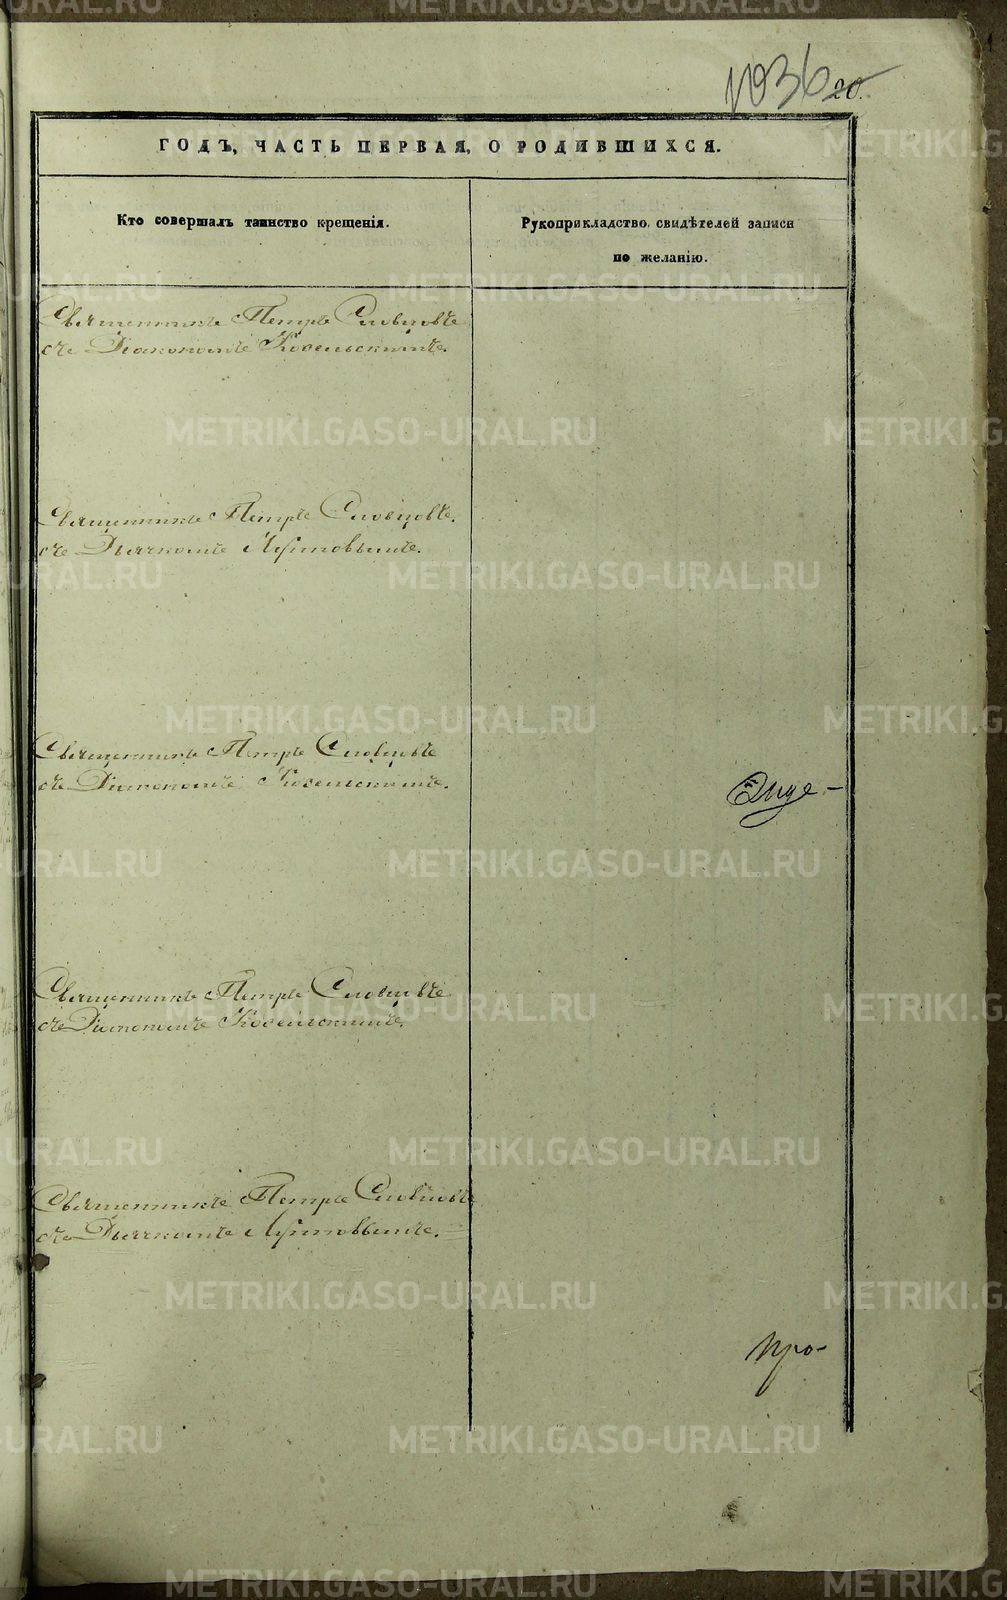 1036 20.
ГОДЪ, ЧАСТЬ ПЕРВАЯ, О РОДИВШИХСЯ.
Кто совершалъ таинство крещенія.
Рукоприкладство свидѣтелей записи
по желанію.
Священникъ Петръ Словцовъ
съ Діакономъ Косельскимъ.
Священникъ Петръ Словцовъ.
съ Дьячкомъ
Священникъ Петръ Словцовъ
съ Діакономъ Косельскимъ.
Священникъ Петръ Словцовъ
съ Діакономъ Косельскимъ.
Священникъ Петръ Словцовъ
съ Дьячкомъ
про-
METRIKI.GASO-URAL.RU